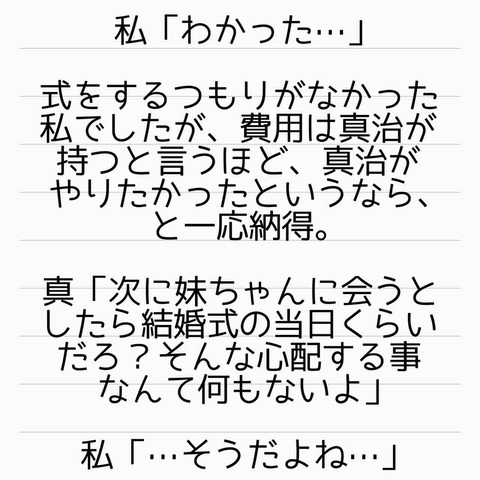 私「わかった…」
式をするつもりがなかった
私でしたが、費用は真治が
持つと言うほど、真治が
やりたかったというなら、
と一応納得。
真「次に妹ちゃんに会うと
したら結婚式の当日くらい
だろ？そんな心配する事
なんて何もないよ」
私「…そうだよね…」